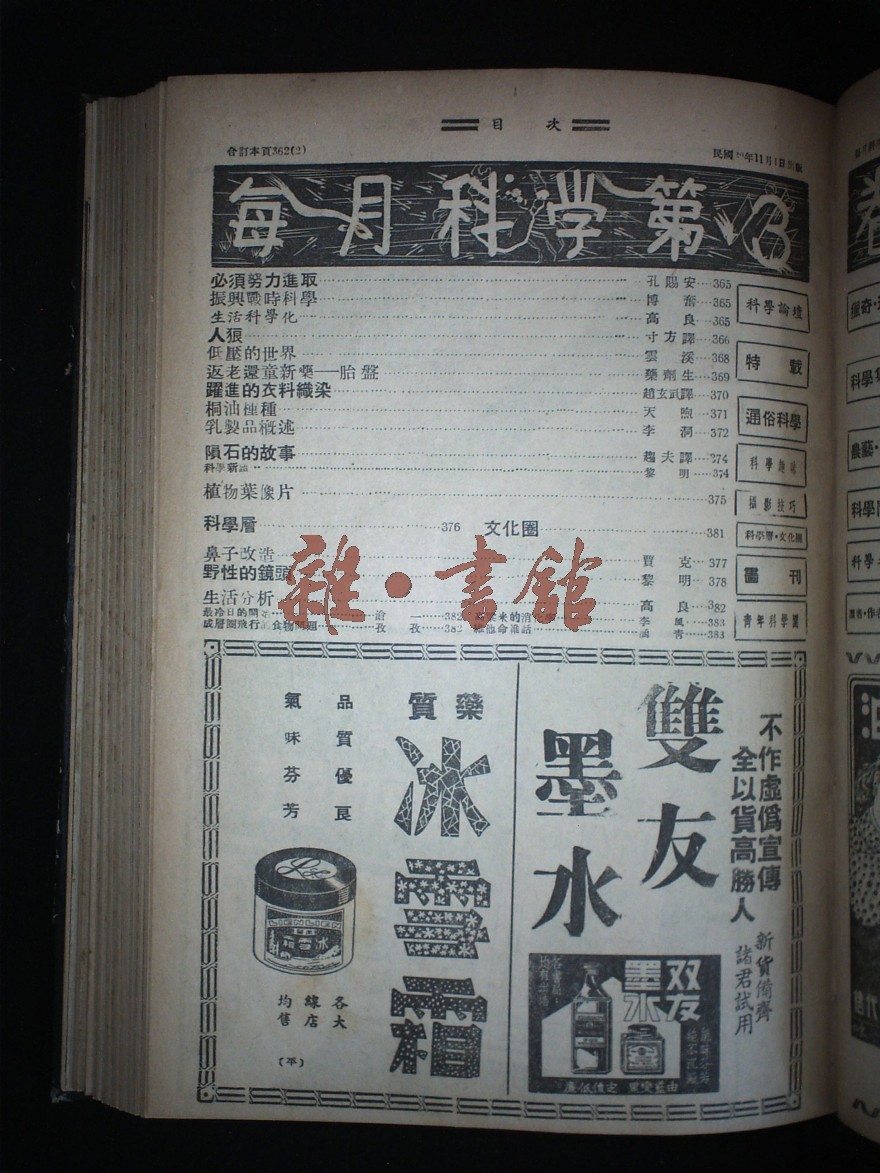 目 次
合訂本頁362(2)
民國 年11月1日出版
每月科学第3
必須努力進取 孔賜安 365
振興戰時科學 博奮 365
生活科學化 高良 365
人狼 寸方譯 366
低壓的世界 雲溪 368
返老還童新藥——胎盤 藥劑生 369
躍進的衣料織染 趙玄武譯 370
桐油種種 天煦 371
乳製品概述 李洞 372
隕石的故事 趨夫譯 374
科學新 黎明 374
植物葉像片 375
科學層 376 文化圈 381
鼻子改造 賈克 377
野性的鏡頭 黎明 378
生活分析 高良 382
最冷日的 382 李風 383
成層圈飛行 食物問題 孜孜 382 維他命 話 青 383
科學論壇
特載
通俗科學
科學
攝影技巧
科學層·文化圈
畫刊
青年科學園
雜·書館
不作虛僞宣傳
全以貨高勝人
新貨備齊
諸君試用
雙友
墨水
双友
墨水
藥質
冰雪霜
品質優良
氣味芬芳
冰雪霜
各大
線店
均售
(平)